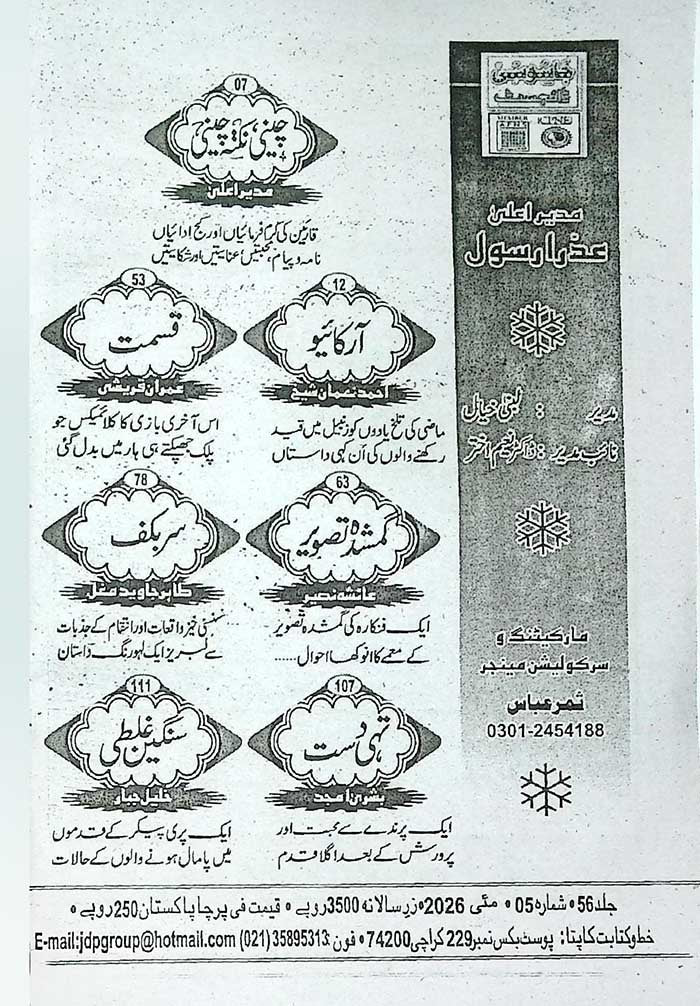 جاسوسی
ڈائجسٹ
MEMBER
APNS
CPNE
مدیر اعلیٰ
عذرا رسول
مدیر : لبنیٰ خیال
نائب مدیر : ڈاکٹر نعیم اختر
مارکیٹنگ و
سرکولیشن مینجر
ثمر عباس
0301-2454188
07
چینی، نکتہ چینی
مدیر اعلیٰ
قارئین کی کرم فرمائیاں اور کج ادائیاں
نامہ و پیام، محبتیں، عنایتیں اور شکایتیں
12
آرکائیو
احمد نعمان شیخ
ماضی کی تلخ یادوں کو زنبیل میں قید
رکھنے والوں کی اَن کہی داستاں
53
قسمت
عمران قریشی
اس آخری بازی کا کلائمیکس جو
پلک جھپکتے ہی ہار میں بدل گئی
63
گمشدہ تصویر
عائشہ نصیر
ایک فنکارہ کی گمشدہ تصویر
کے معمے کا انوکھا احوال......
78
سر بکف
طاہر جاوید مغل
سنسنی خیز واقعات اور انتقام کے جذبات
سے لبریز ایک لہو رنگ داستان
107
تہی دست
بشریٰ امجد
ایک پرندے سے محبت اور
پرورش کے بعد اگلا قدم
111
سنگین غلطی
خلیل جبار
ایک پری پیکر کے قدموں
میں پامال ہونے والوں کے حالات
جلد 56 • شماره 05 • مئی 2026 • زر سالانہ 3500 روپے • قیمت فی پرچا پاکستان 250 روپے •
خط و کتابت کا پتا: پوسٹ بکس نمبر 229 کراچی 74200 • فون: 35895313 (021) E-mail:jdpgroup@hotmail.com